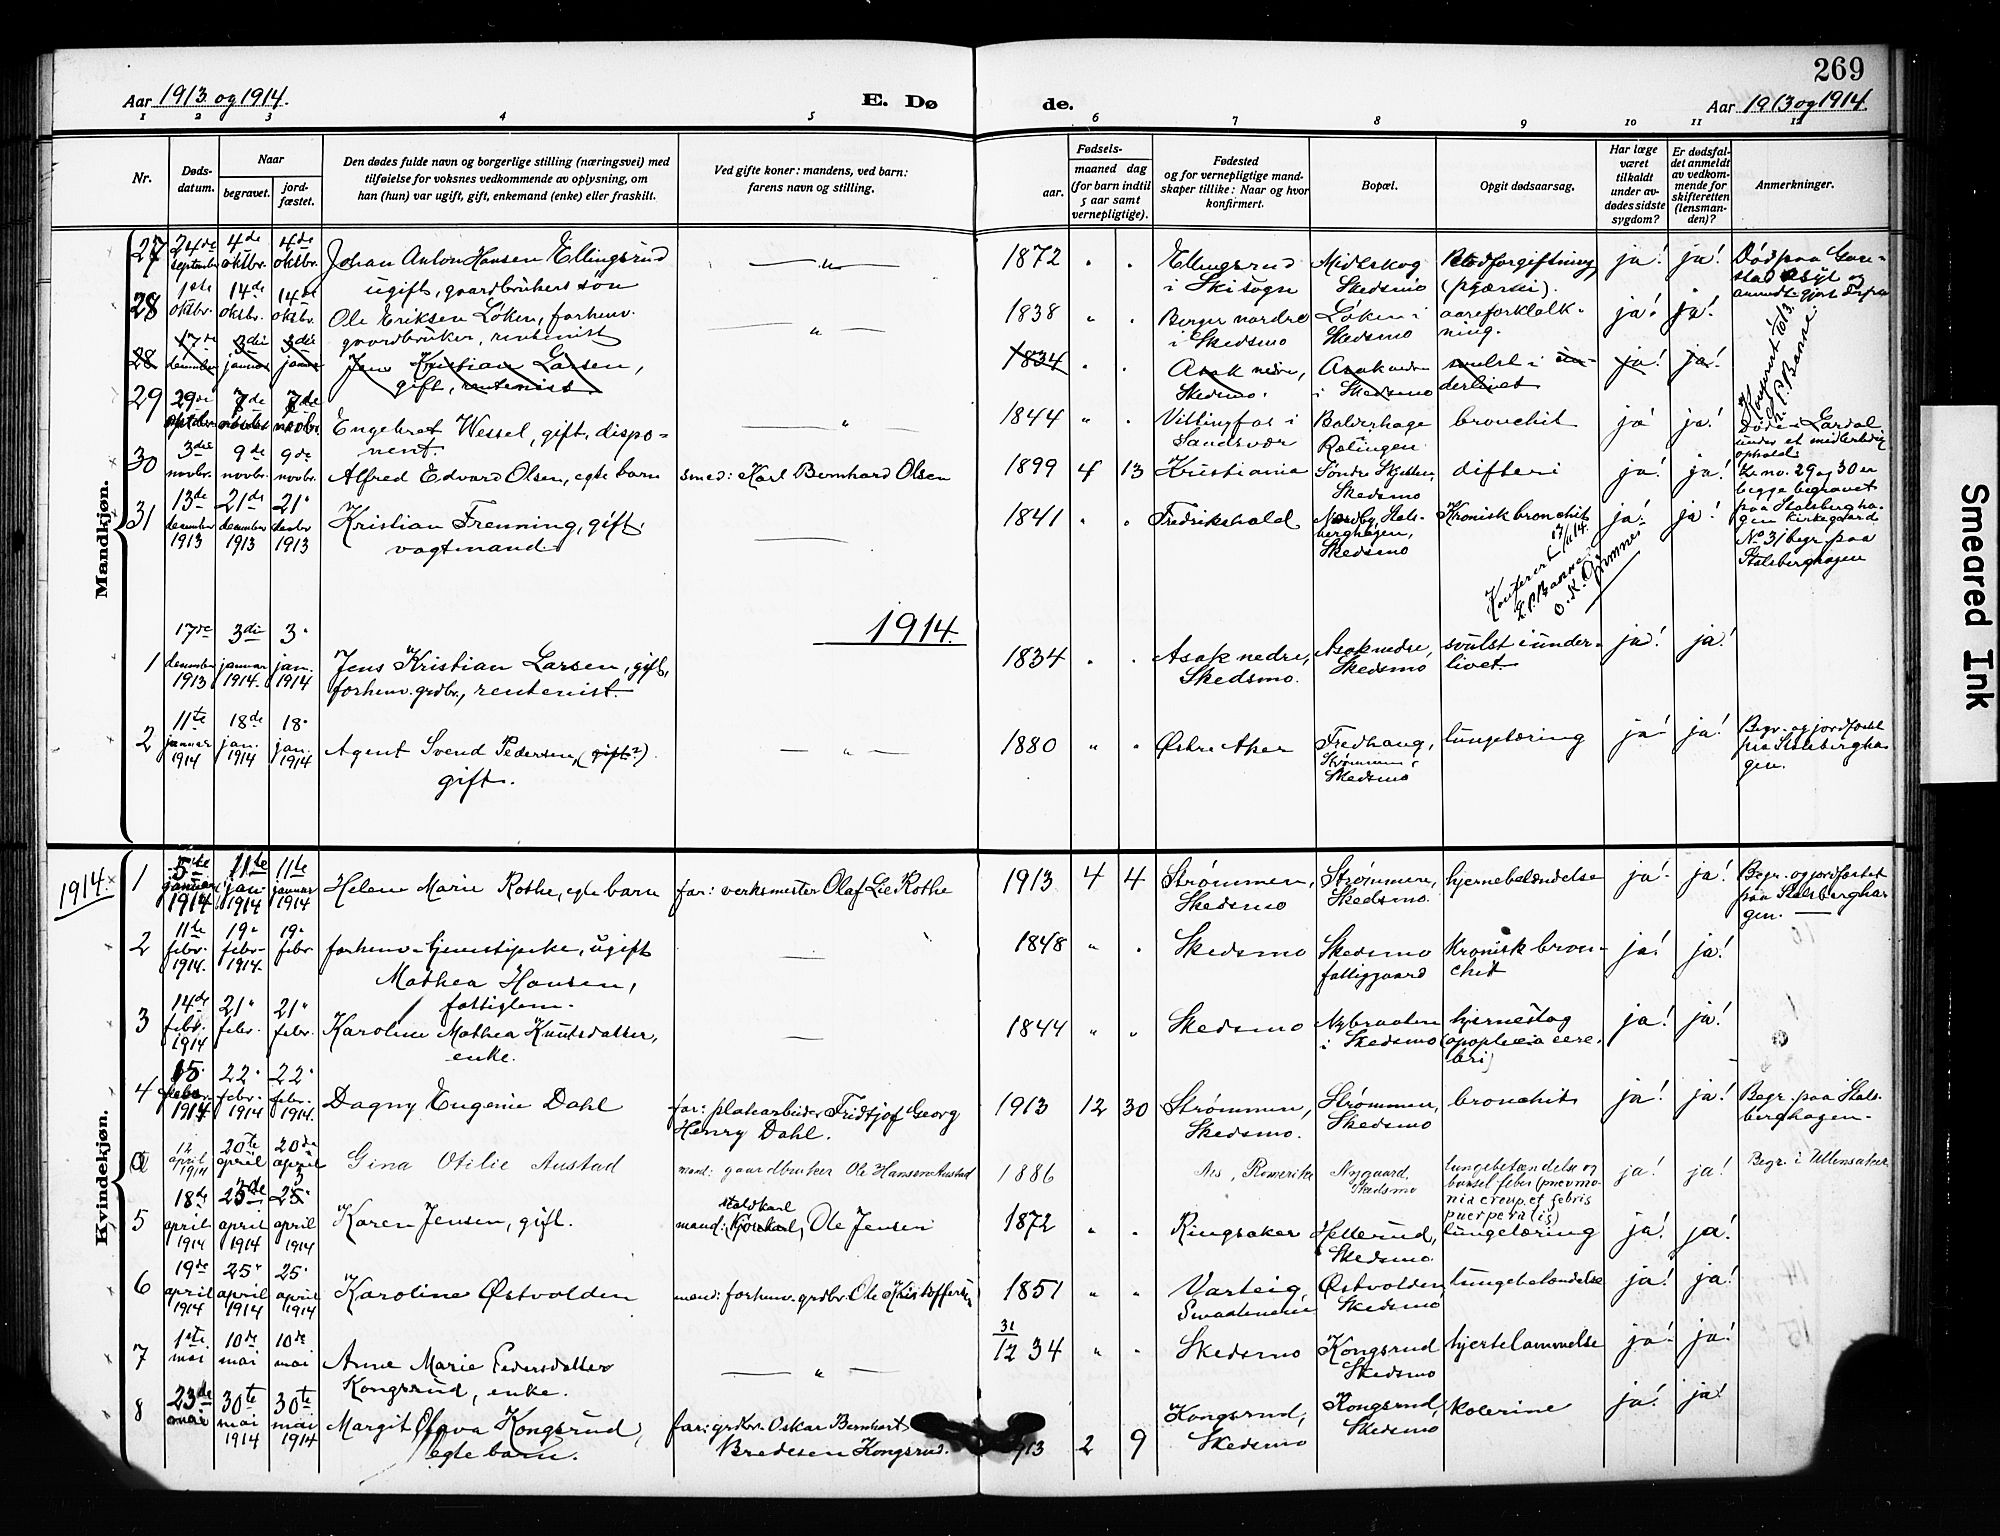 269
Aar 1913 og 1914.
E. Døde.
Aar 1913 og 1914.
1 2 3 4 5 6 7 8 9 10 11 12
Nr.
Døds-datum.
Naar
begravet.
jord-fæstet.
Den dødes fulde navn og borgerlige stilling (næringsvei) med
tilføielse for voksnes vedkommende av oplysning, om
han (hun) var ugift, gift, enkemand (enke) eller fraskilt.
Ved gifte koner: mandens, ved barn:
farens navn og stilling.
Fødsels-
aar. maaned dag
(for barn indtil
5 aar samt
vernepligtige).
Fødested
og for vernepligtige mand-
skaper tillike: Naar og hvor
konfirmert.
Bopæl.
Opgit dødsaarsag.
Har læge
været
tilkaldt
under av-
dødes sidste
sygdom?
Er dødsfal-
det anmeldt
av vedkom-
mende for
skifteretten
(lensman-
den)?
Anmerkninger.
Mandkjøn.
27 24de september 4de oktbr. 4de oktbr. Johan Anton Hansen Ellingsrud ugift, gaardbrukers søn — " — 1872 " " Ellingsrud i Ski sogn Midtskog Skedsmo Blodforgiftning (pyæmi). ja! ja! Død paa Gaustad asyl og
28 1ste oktbr. 14de oktbr. 14de oktbr. Ole Eriksen Løken, forhenv. gaardbruker, rentenist — " — 1838 " " Berger nordre i Skedsmo Løken i Skedsmo aareforkalkning. ja! ja!
28 17de december 3die januar 3die januar Jens Kristian Larsen, gift, rentenist 1834 " " Asak nedre, Skedsmo. Asak nedre i Skedsmo svulst i underlivet ja! ja!
29 29de 7de 7de novbr. Engebret Wessel, gift, disponent. — " — 1844 " " Vittingfos i Sandsvær Boldershage Rælingen bronchit ja! ja! Døde i Lardal under et midlertidig ophold.
30 3die novbr. 9de novbr. 9de novbr. Alfred Edvard Olsen, egte barn smed: Karl Bernhard Olsen 1899 4 13 Kristiania Søndre Skjetten, Skedsmo difteri ja! ja! Lk. no. 29 og 30 er begge begravet paa Stalsberghagen kirkegaard
31 13de december 1913 21de december 1913 21" decbr 1913 Kristian Frenning, gift, vagtmand — 1841 " " Fredrikshald Nordby, Stalsberghagen, Skedsmo Kronisk bronchit ja! ja! No 31 begr. paa Stalsberghagen
1914.
1 17de december 1913 3die januar 1914. 3" jan. 1914 Jens Kristian Larsen, gift, forhenv. grdbr., rentenist. 1834 " " Asak nedre, Skedsmo. Asak nedre, Skedsmo svulst i underlivet. ja! ja!
2 11te januar 1914 18de jan. 1914 18" jan. 1914 Agent Svend Pedersen, (gift?) gift. — " — 1880 " " Østre Aker Fredhaug, Strømmen i Skedsmo tungetæring ja! ja! Begr. og jordfæstet paa Stalsberghagen.
Kvindekjøn.
1914.
1 5te januar 1914 11te jan. 1914 11te januar 1914 Helen Marie Rothe, egte barn far: verksmester Olaf Lie Rothe 1913 4 4 Strømmen, Skedsmo Strømmen, Skedsmo. hjernebetændelse ja! ja! Begr. og jordfæstet paa Stalsberghagen. —
2 11te febr. 1914. 19" febr. 1914. 19" febr. forhenv. tjenestepike, ugift Mathea Hansen, fattiglem. — 1848 " " Skedsmo Skedsmo fattiggaard Kronisk bronchit ja! ja!
3 14de febr. 1914 21" febr. 21" febr. Karoline Mathea Knutsdatter, enke. — 1844 " " Skedsmo Nybraaten i Skedsmo hjerneslag (apoplexia cerebri) ja! ja!
4 15 febr. 1914 22" febr. 1914 22" febr. 1914. Dagny Eugenie Dahl far: platearbeider Fridtjof Georg Henry Dahl. 1913 12 30 Strømmen, Skedsmo. Strømmen, Skedsmo bronchit ja! ja! Begr. paa Stalsberghagen.
a 12 april 1914 20te april 20de april Gina Otilie Austad mand: gaardbruker Ole Hansen Austad 1886 Nes, Romerike Nygaard, Skedsmo lungebetændelse og barsel feber (pneumonia croup. et febris puerperalis) ja! ja! Begr. i Ullensaker
5 18de april 1914 25de april 1914 25" april 1914 Karen Jensen, gift. mand: staldkarl Ole Jensen 1872 " " Ringsaker Hellerud, Skedsmo tungetæring ja! ja!
6 19de april 1914 25" april 1914 25" april 1914 Karoline Østvolden mand: forhenv. grdbr. Ole Kristoffersen 1851 " " Varteig, Smaalenene Østvolden, Skedsmo lungebetændelse ja! ja!
7 1ste mai 10de mai 10de mai Anne Marie Pedersdatter Kongsrud, enke. — " — 31/12 34 " " Skedsmo Kongsrud Skedsmo hjertelammelse ja! ja!
8 23de mai 30te mai 1914 30te mai 1914 Margit Olava Kongsrud, egte barn. far: grdbr. Oskar Bernhart Bredesen Kongsrud. 1913 2 9 Kongsrud, Skedsmo Kongsrud, Skedsmo kolerine ja! ja!
Smeared Ink